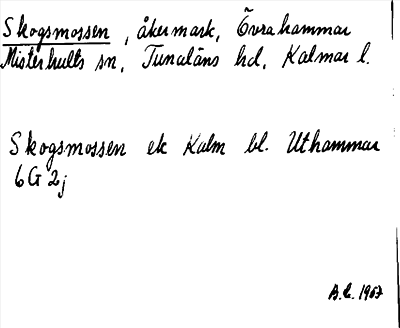 Skogsmossen, åkermark, Övrahammar
Misterhults sn, Tunaläns hd, Kalmar l.
Skogsmossen ek Kalm bl. Uthammar
6G2j
A.C. 1967